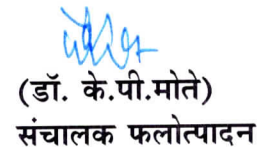 (डॉ. के.पी.मोते)
संचालक फलोत्पादन